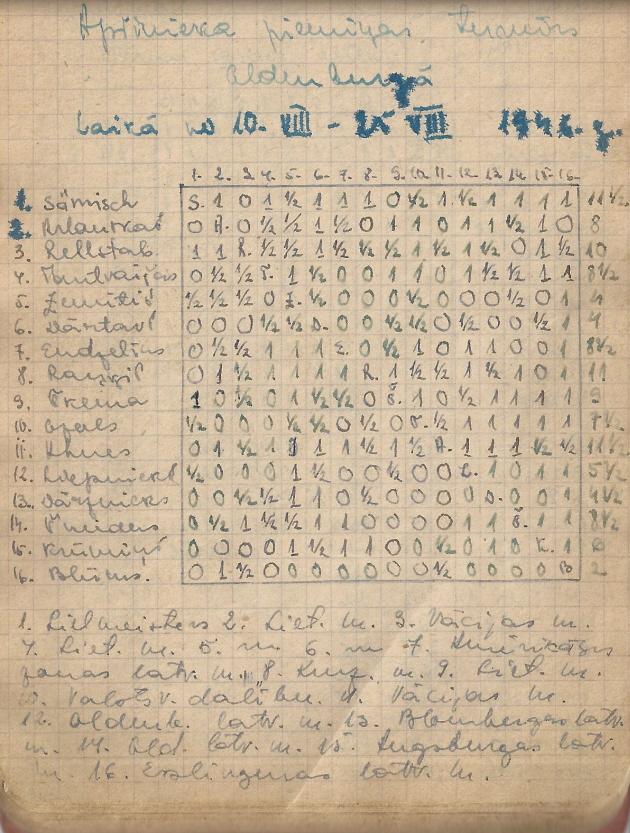 piemiņas Turnīrs
Oldenburgā
laikā no 10. VIII - 25 VIII 1946. g.
1. 2. 3. 4. 5. 6. 7. 8. 9. 10. 11. 12. 13. 14. 15. 16.
1. Sämisch S. 1 0 1 ½ 1 1 1 0 ½ 1 ½ 1 1 1 1 11½
2. 0 A. 0 ½ ½ 1 ½ 0 1 1 0 1 1 ½ 1 0 8
3. Rellstab 1 1 R. ½ ½ 1 ½ ½ ½ 1 ½ 1 ½ 0 1 ½ 10
4. 0 ½ ½ T. 1 ½ 0 0 1 1 0 1 ½ ½ 1 1 8½
5. Zemītis ½ ½ ½ 0 Z. ½ 0 0 0 ½ 0 0 0 ½ 0 1 4
6. Dārtavs 0 0 0 ½ ½ D. 0 0 ½ ½ 0 ½ 0 0 ½ 1 4
7. Endzelins 0 ½ ½ 1 1 1 E. 0 ½ 1 0 1 1 0 0 1 8½
8. 0 1 ½ 1 1 1 1 R. 1 ½ ½ 1 ½ 1 0 1 11
9. 1 0 ½ 0 1 ½ ½ 0 1 0 ½ 1 1 1 1 9
10. Ozols ½ 0 0 0 ½ ½ 0 ½ 0 ½ 1 1 1 1 1 7½
11. 0 1 ½ 1 1 1 1 ½ 1 ½ 1 1 1 ½ ½ 11½
12. Liepnieks ½ 0 0 0 1 ½ 0 0 ½ 0 0 L. 1 0 1 1 5½
13. Dārznieks 0 0 ½ ½ 1 1 0 ½ 0 0 0 0 D. 0 0 1 4½
14. 0 ½ 1 ½ ½ 1 1 0 0 0 0 1 1 1 1 8½
15. Krūmiņš 0 0 0 0 1 ½ 1 1 0 0 ½ 0 1 0 K. 1 6
16. Blūms. 0 1 ½ 0 0 0 0 0 0 0 ½ 0 0 0 0 2
1. Lielmeisters 2. Liet. m. 3. Vācijas m.
4. Liet. m. 5. m. 6. m 7. Amērikāņu
zonas latv. m. 8. m. 9. Liet. m.
10. Valstsv. dalībn. 11. Vācijas m.
12. Oldenb. latv. m. 13. Blombergas latv.
m. 14. Old. latv. m. 15. Augsburgas latv.
m. 16. Eslingenas latv. m.